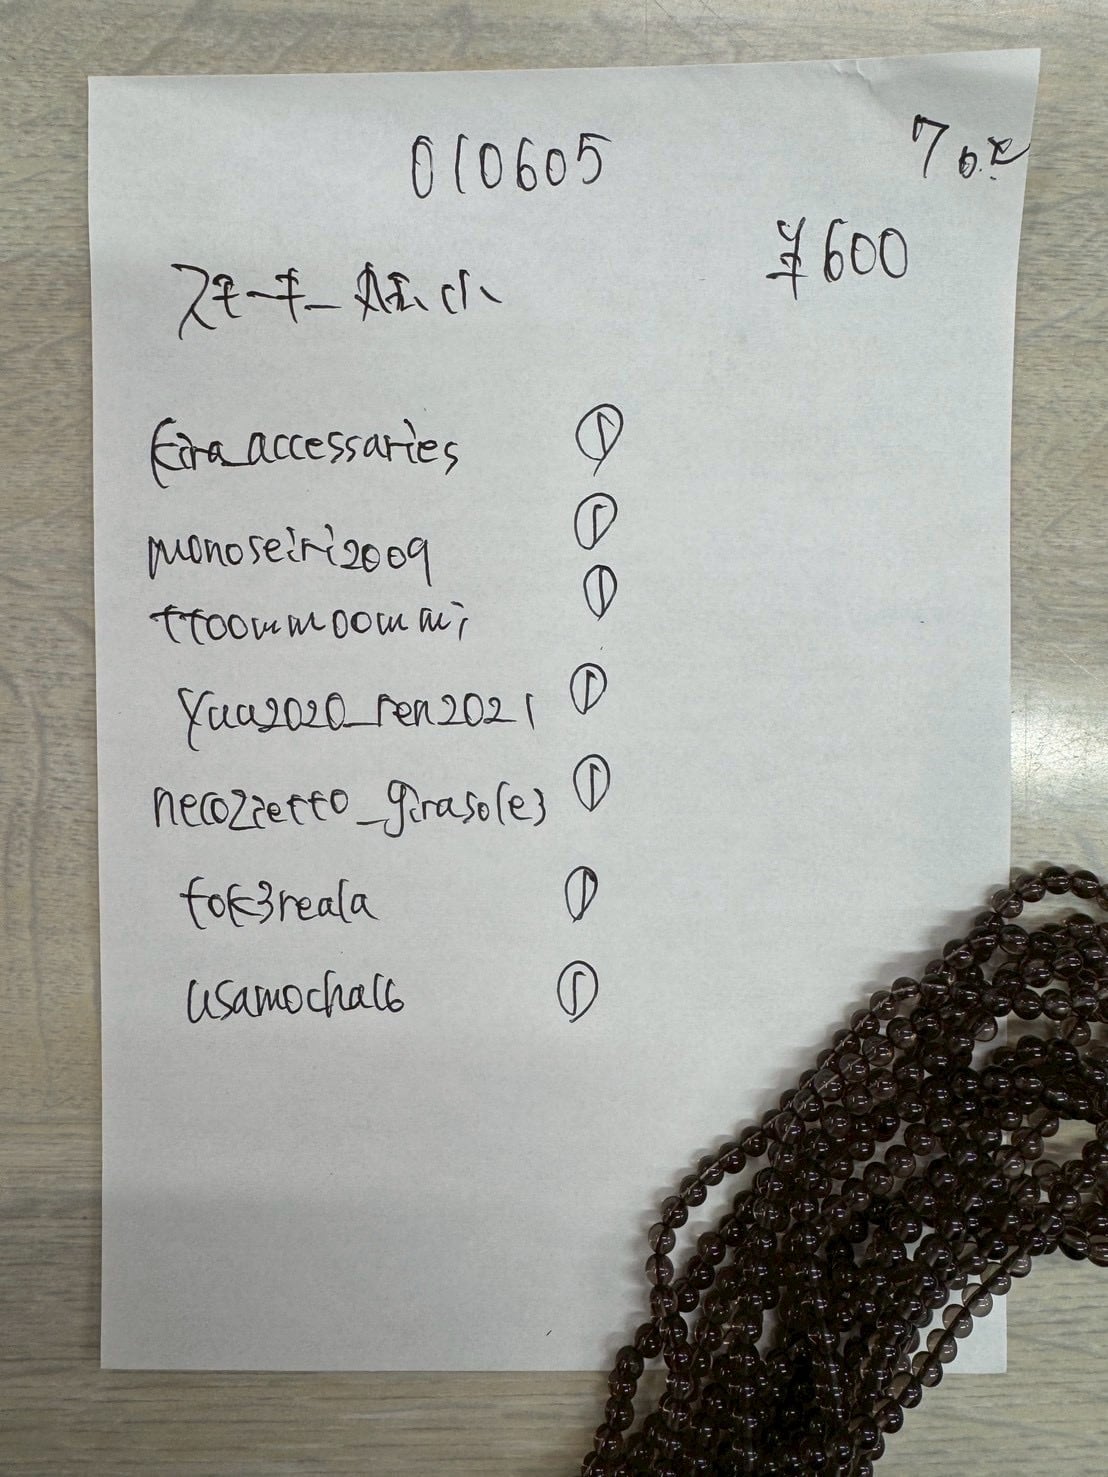 010605
¥600
スモーキー
kira_accessaries ①
monoseiri2009 ①
ttoommoommi ①
yuu2020_ren2021 ①
necozzetto_girasole3 ①
tok3reala ①
usamocha16 ①